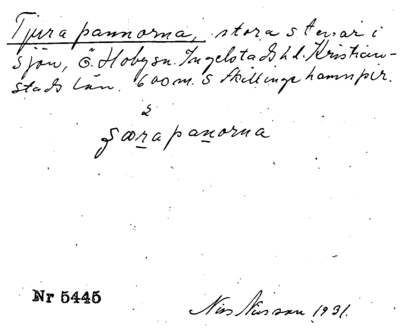 Tjurapannorna, stora stenar i
sjön, Ö. Hoby sn. Ingelstads hd. Kristian-
stads län. 600 m. S Skillinge hamnpir.
2
ʂørapanorna
Nr 5445
Nils Nilsson 1931.